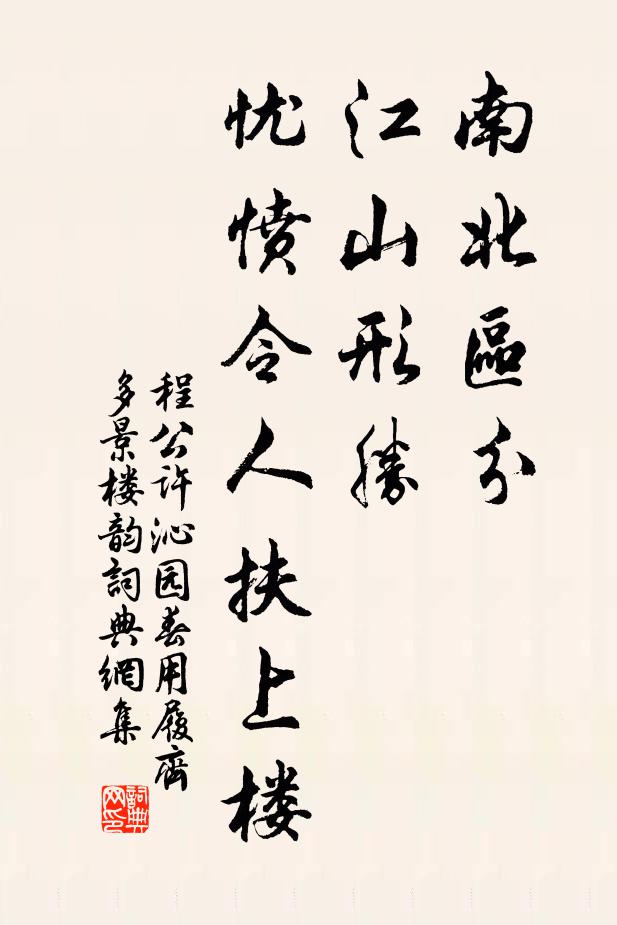 南北區分
江山形勝
忧愤令人扶上楼
程公许沁园春用履齋
多景楼韵詞典網集
詞典网印